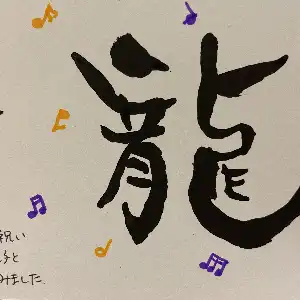 龍
祝い
みました